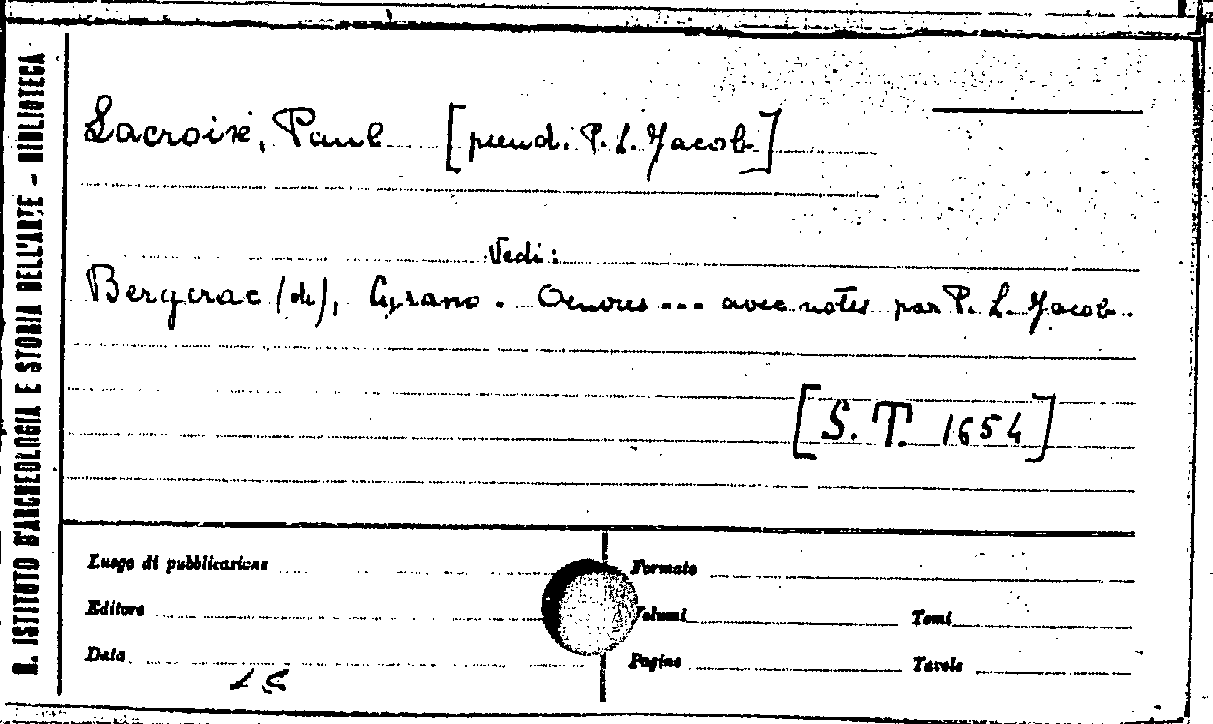 R. ISTITUTO D'ARCHEOLOGIA E STORIA DELL'ARTE - BIBLIOTECA
Lacroix, Paul [pseud. P. L. Jacob]
Vedi:
Bergerac (de), Cyrano. Oeuvres --- avec notes par P. L. Jacob.
[S. T. 1654]
Luogo di pubblicazione Formato
Editore Volumi Tomi
Data Pagine Tavole